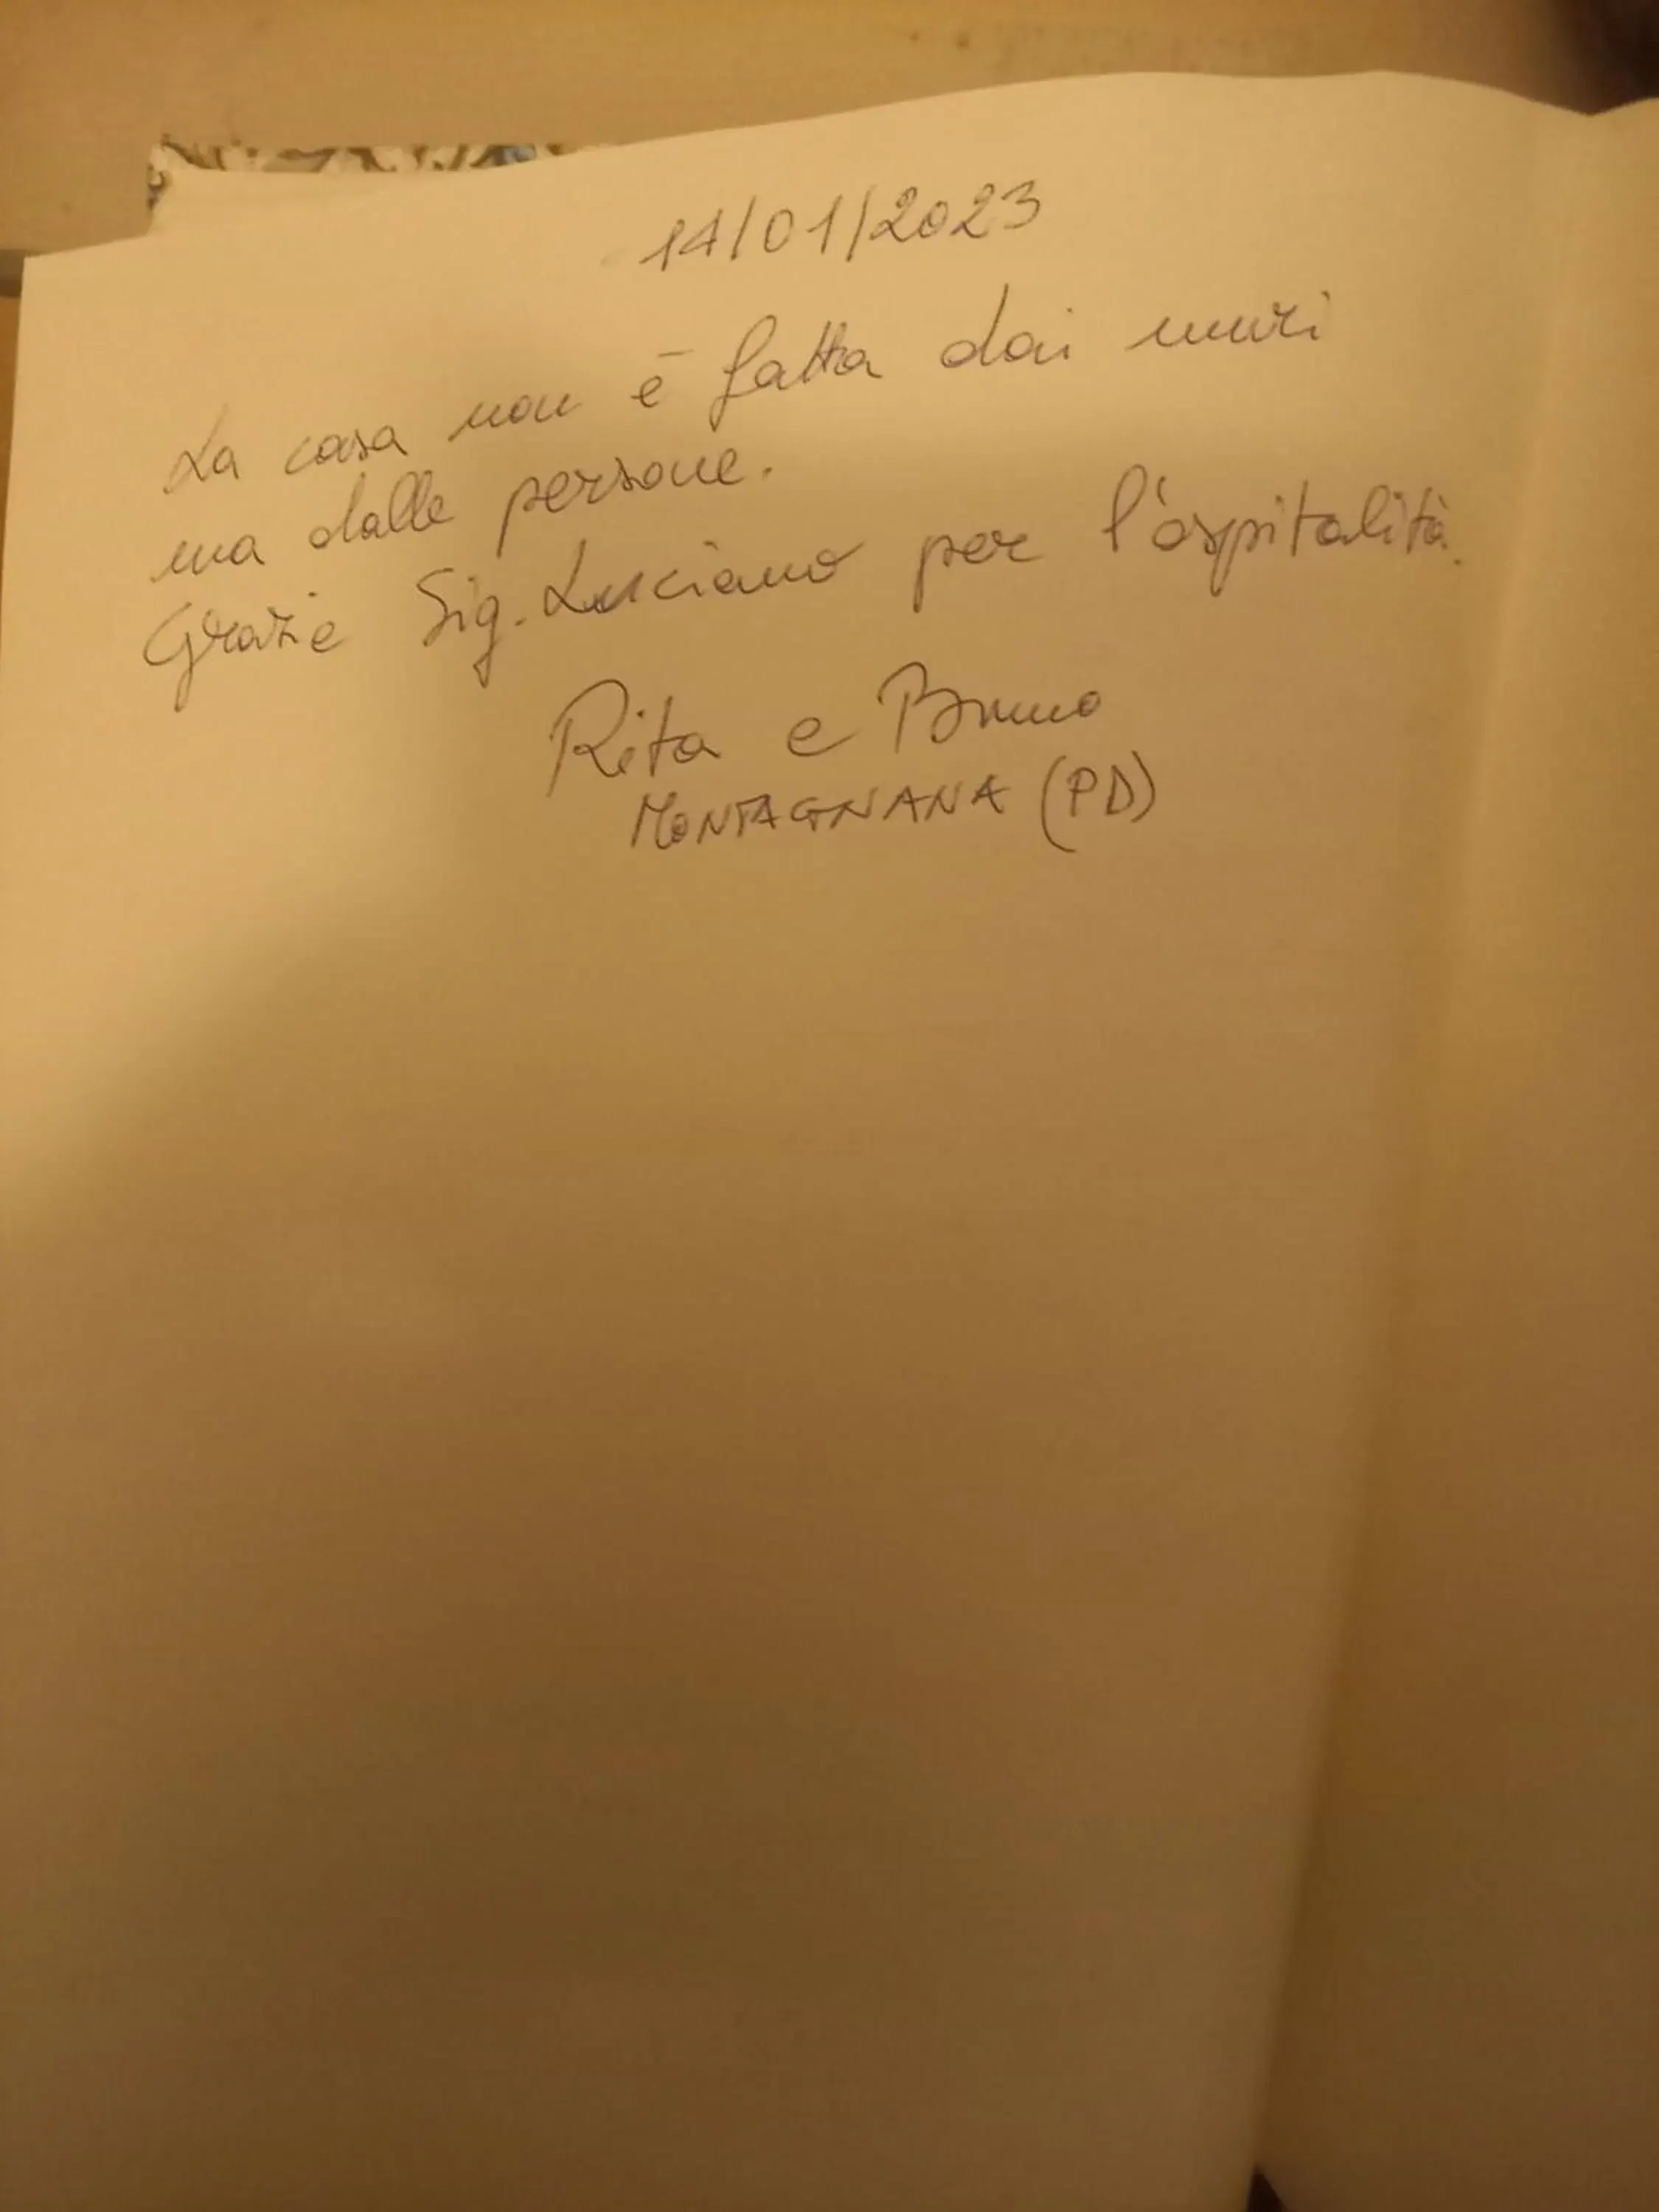 14/01/2023
La casa non è fatta dai muri
ma dalle persone.
Grazie Sig. Luciano per l'ospitalità.
Rita e Bruno
MONTAGNANA (PD)